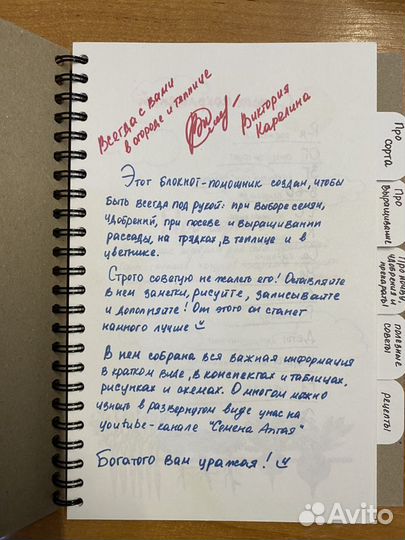 Всегда с вами
в огороде и теплице
Виктория
Карелина
Этот блокнот-помощник создан, чтобы
быть всегда под рукой: при выборе семян,
удобрений, при посеве и выращивании
рассады, на грядках, в теплице и в
цветнике.
Строго советую не жалеть его! Оставляйте
в нем заметки, рисуйте, записывайте
и дополняйте! От этого он станет
намного лучше
В нем собрана вся важная информация
в кратком виде, в конспектах и таблицах,
рисунках и схемах. О многом можно
узнать в развернутом виде у нас на
youtube-канале "Семена Алтая"
Богатого вам урожая!
Про
сорта
Про
выращивание
Про почву,
удобрения и
препараты
полезные
советы
рецепты
Avito